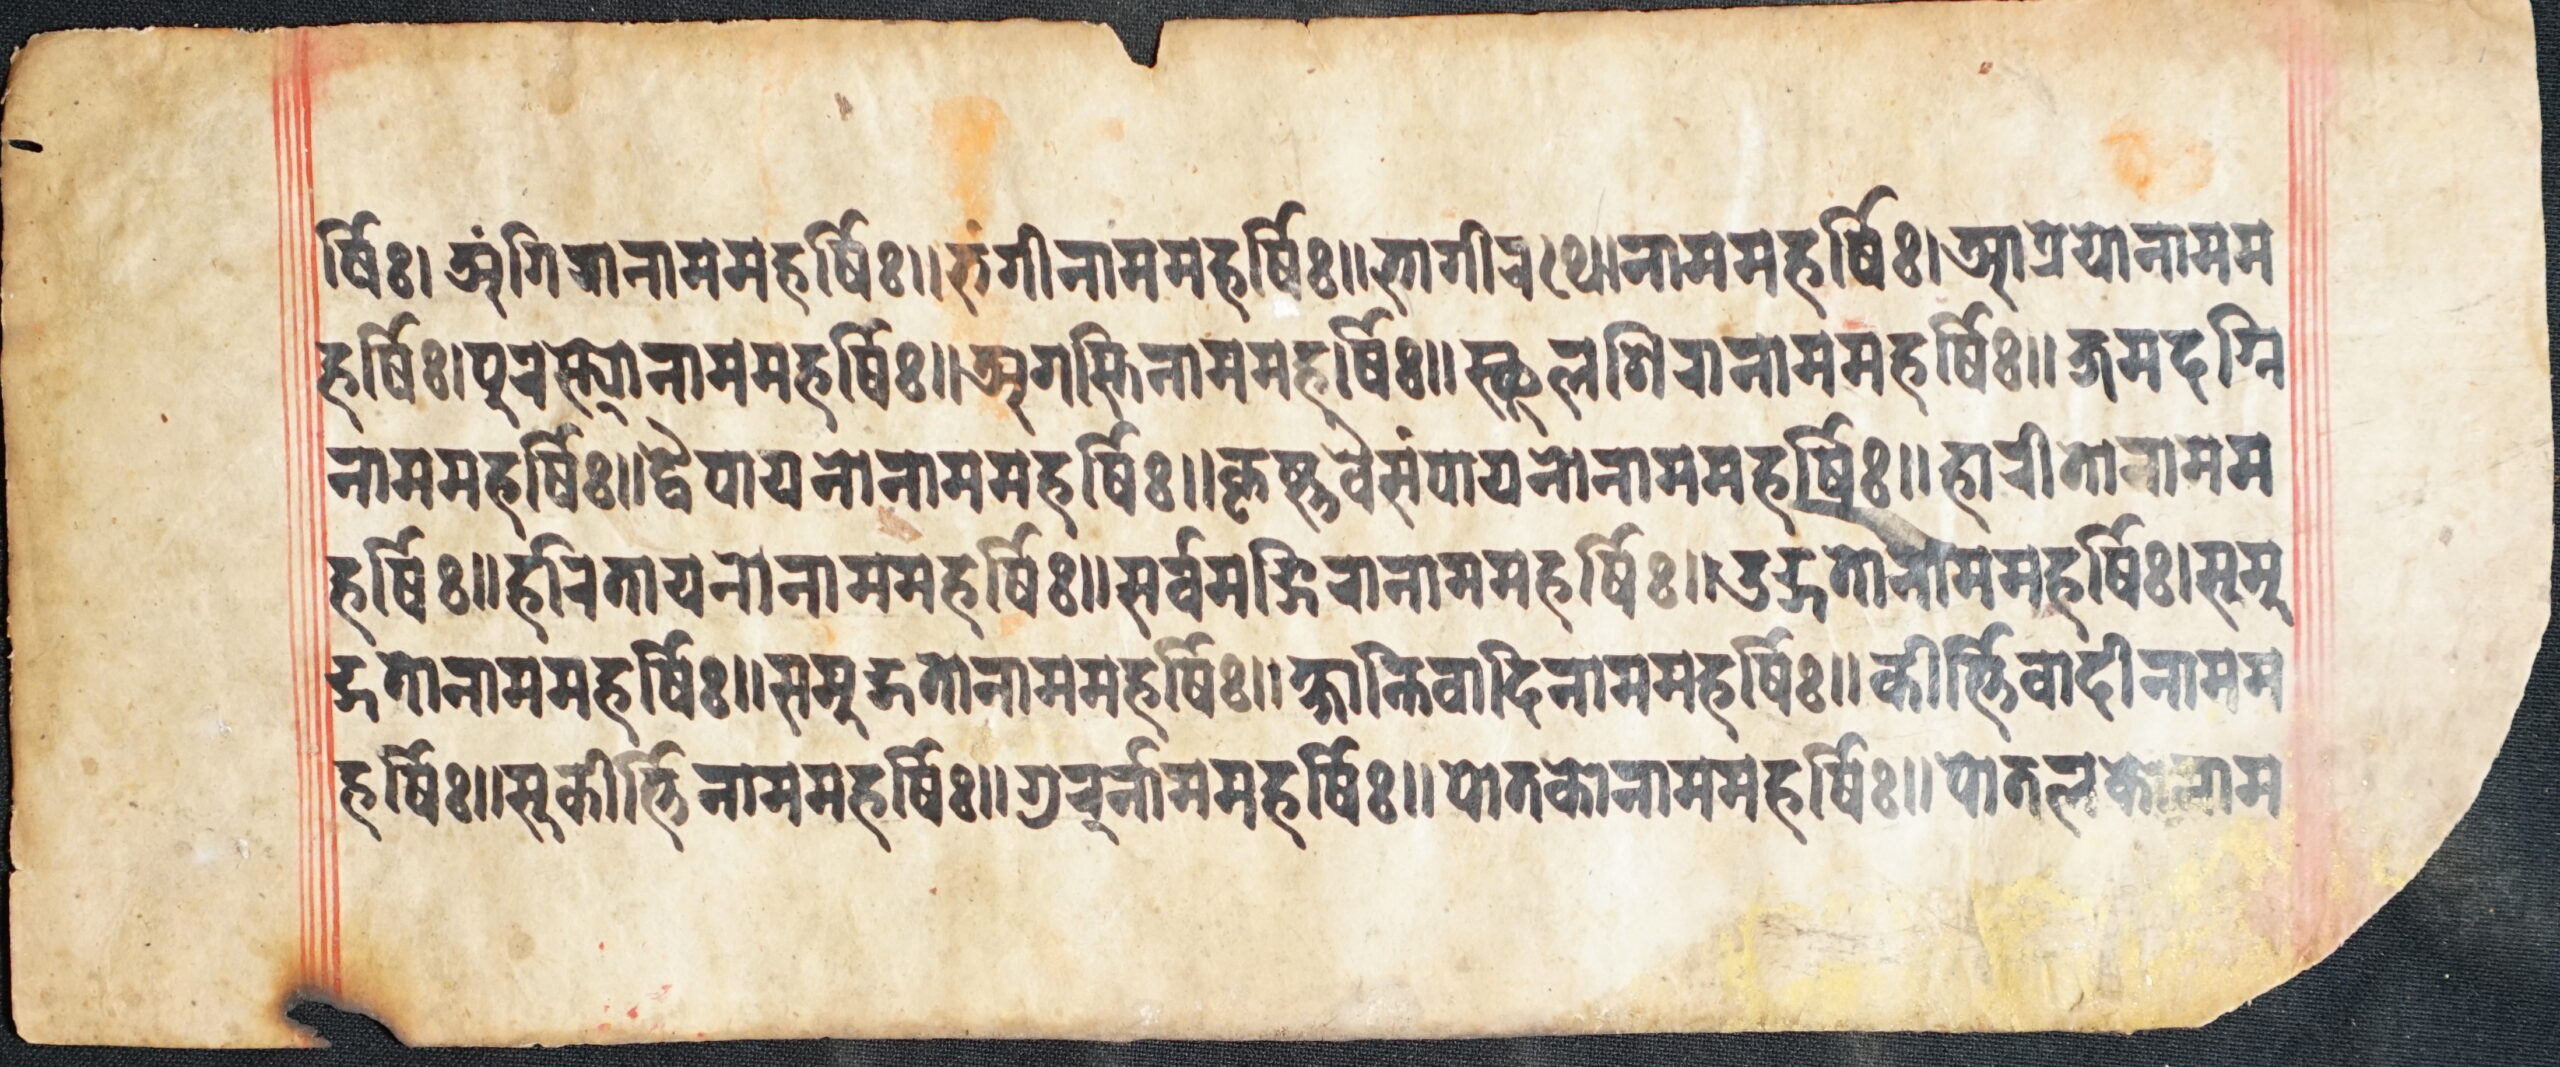 र्षिः। अंगिरानाममहर्षिः॥ भृंगीनाममहर्षिः॥ भागीरथोनाममहर्षिः। आत्रेयोनामम
हर्षिः। पुरस्त्योनाममहर्षिः॥ अगस्तिनाममहर्षिः॥ स्थूलशिरानाममहर्षिः॥ जमदग्नि
नाममहर्षिः॥ द्वैपायनोनाममहर्षिः॥ कृष्णवैसंपायनोनाममहर्षिः॥ हारीतोनामम
हर्षिः॥ हरितायनोनाममहर्षिः॥ सर्वमङ्गिरानाममहर्षिः॥ उद्गतोनाममहर्षिः। समु
द्गतोनाममहर्षिः॥ समुद्गतोनाममहर्षिः॥ क्षान्तिवादिनाममहर्षिः॥ कीर्त्तिवादीनामम
हर्षिः॥ सुकीर्त्तिनाममहर्षिः॥ गुरुर्नाममहर्षिः॥ पोतकोनाममहर्षिः॥ पोतलकोनाम